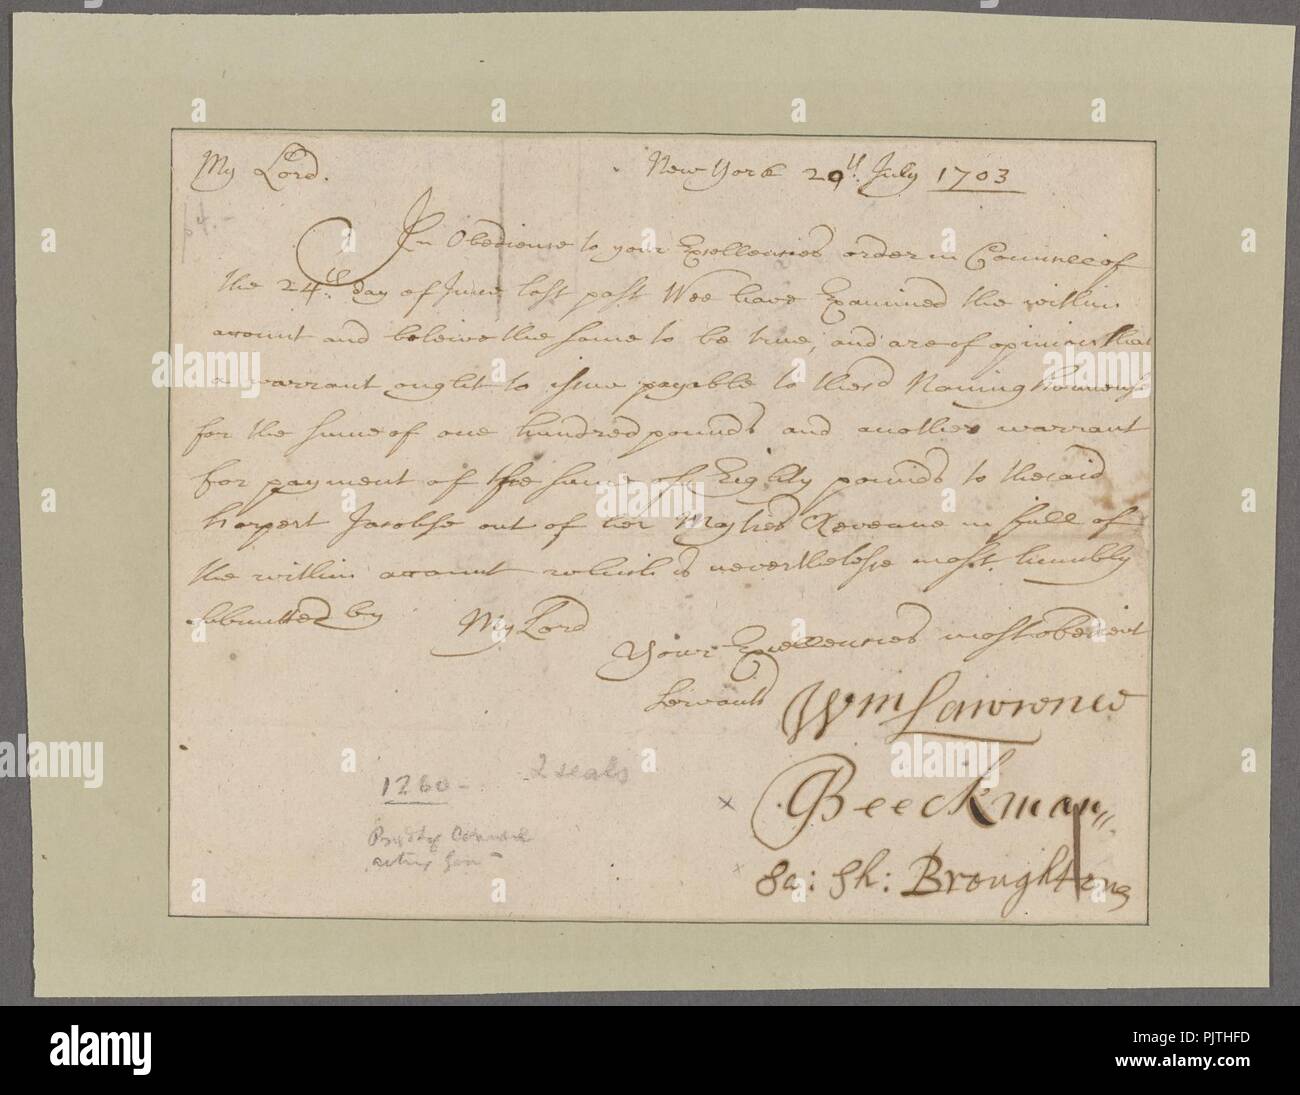 My Lord.
New York 29th July 1703
In Obedience to your Excellencies order in Councill of
the 24th day of June last past Wee have Examined the within
account and beleive the same to be true, and are of opinion that
a warrant ought to issue payable to the sd
for the sume of one hundred pounds and another warrant
for payment of the sume of Eighty pounds to the said
harpert Jacobse out of her Majties Revenue in full of
the within account which is nevertheless most humbly
submitted by My Lord
Your Excellencies most obedient
Servants Wm Lawrence
GBeeckman
Sa: Sh: Broughton
1260-
2 seals
alamy
Image ID: PJTHFD
www.alamy.com